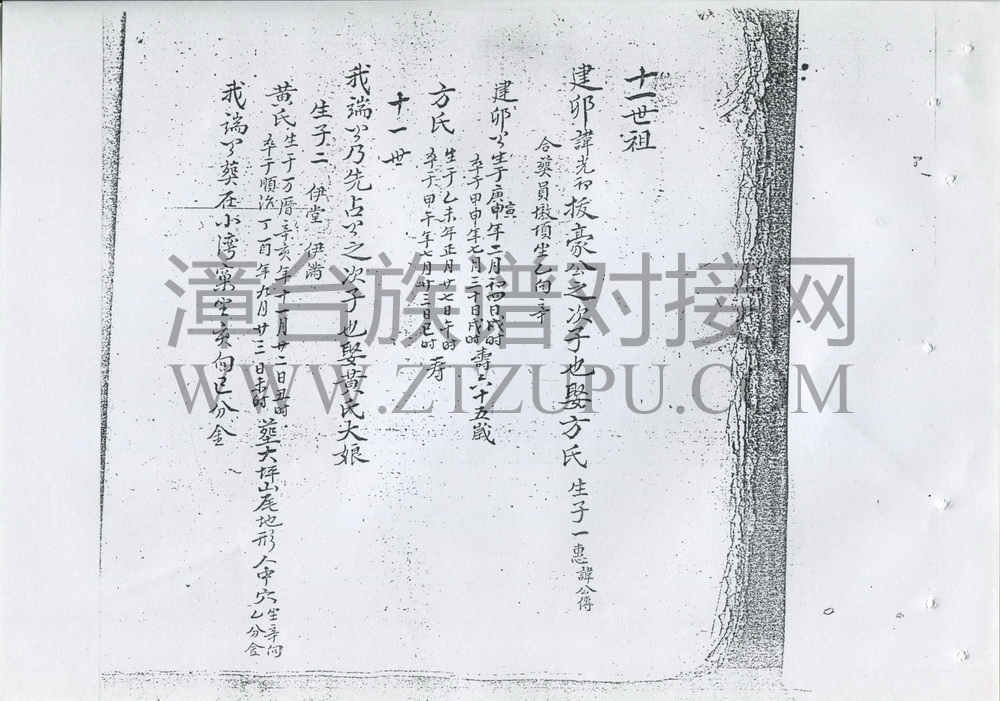 十一世祖
建卯諱光初拔豪公之次子也娶方氏 生子一惠諱公傳
合葬員墩頂坐乙向辛
建卯公生于庚申年二月十四日戌時
卒于甲申年七月三十日戌時 壽六十五歲
方氏 生于乙未年正月廿七日午時
卒于甲午年七月廿三日巳時 寿
十一世
我端公乃先占公之次子也娶黄氏大娘
生子二 伊堂 伊蒿
黄氏 生于万曆辛亥年十一月廿二日丑時
卒于順治丁酉年九月廿三日未時 塟大坪山尾地形人中穴 坐辛向
乙分金
我端公葬在小湾窠坐亥向巳分金
漳台族谱对接网
WWW.ZTZUPU.COM